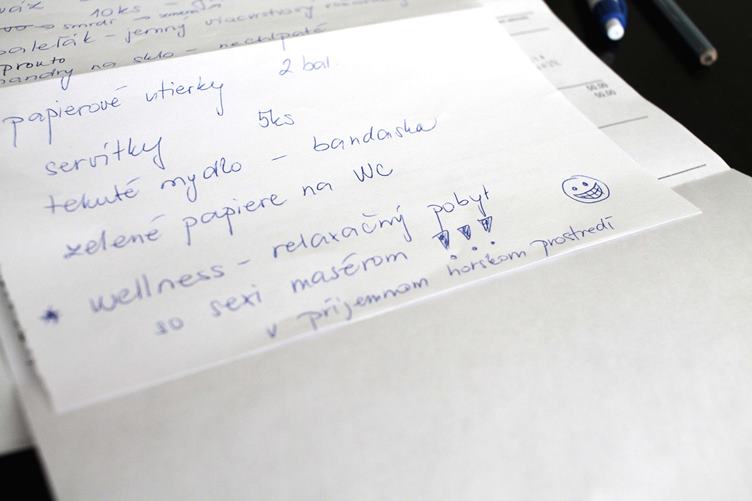 10ks
smrdí → zmena
paleťák - jemný viacvrstvový
pronto
handry na sklo - nechlpaté
papierové utierky 2 bal.
servítky 5ks
tekuté mydlo - bandaska
zelené papiere na WC
* wellness - relaxačný pobyt
so sexi masérom !!!
v príjemnom horskom prostredí
50.00
50.00